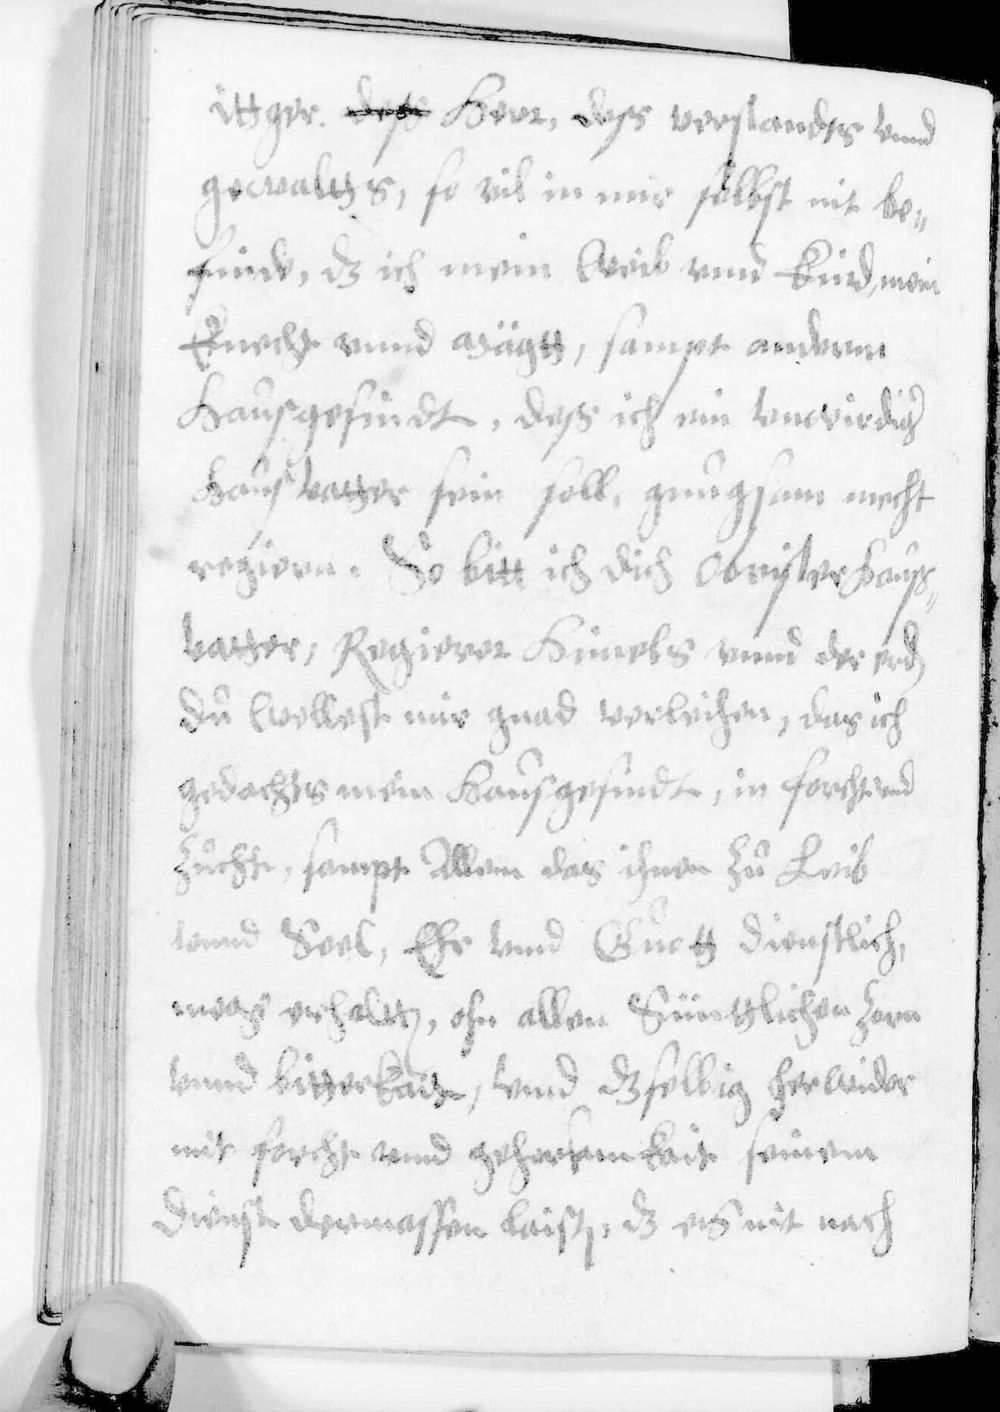 ittger. dess Herr, dess verstandes vnnd
gewaltts, so vil in mir selbst nit be„
finde, dz ich mein Weib vnnd Kind, mein
Knecht vnnd Mägtt, sampt anderm
Hausgesindt, dess ich ein vnwirdig
Haus vatter sein soll, gnuogsam mecht
regiern. So bitt ich dich Obrister Hauss„
vatter, Regierer Himels vnnd der erd
du wellest mir gnad verleihen, das ich
gedachts mein Hausgesindt, in forcht vnd
zucht, sampt Allem das ihnen zu Leib
vnnd Seel, Ehr vnnd Guott dienstlich,
meg erhaltten, ohn allen Sünttlichen zorn
vnnd bitterkait, vnnd dzselbig herwider
mit forcht vnnd gehorsamkait seinem
dienst dermassen laist, dz es nit nach